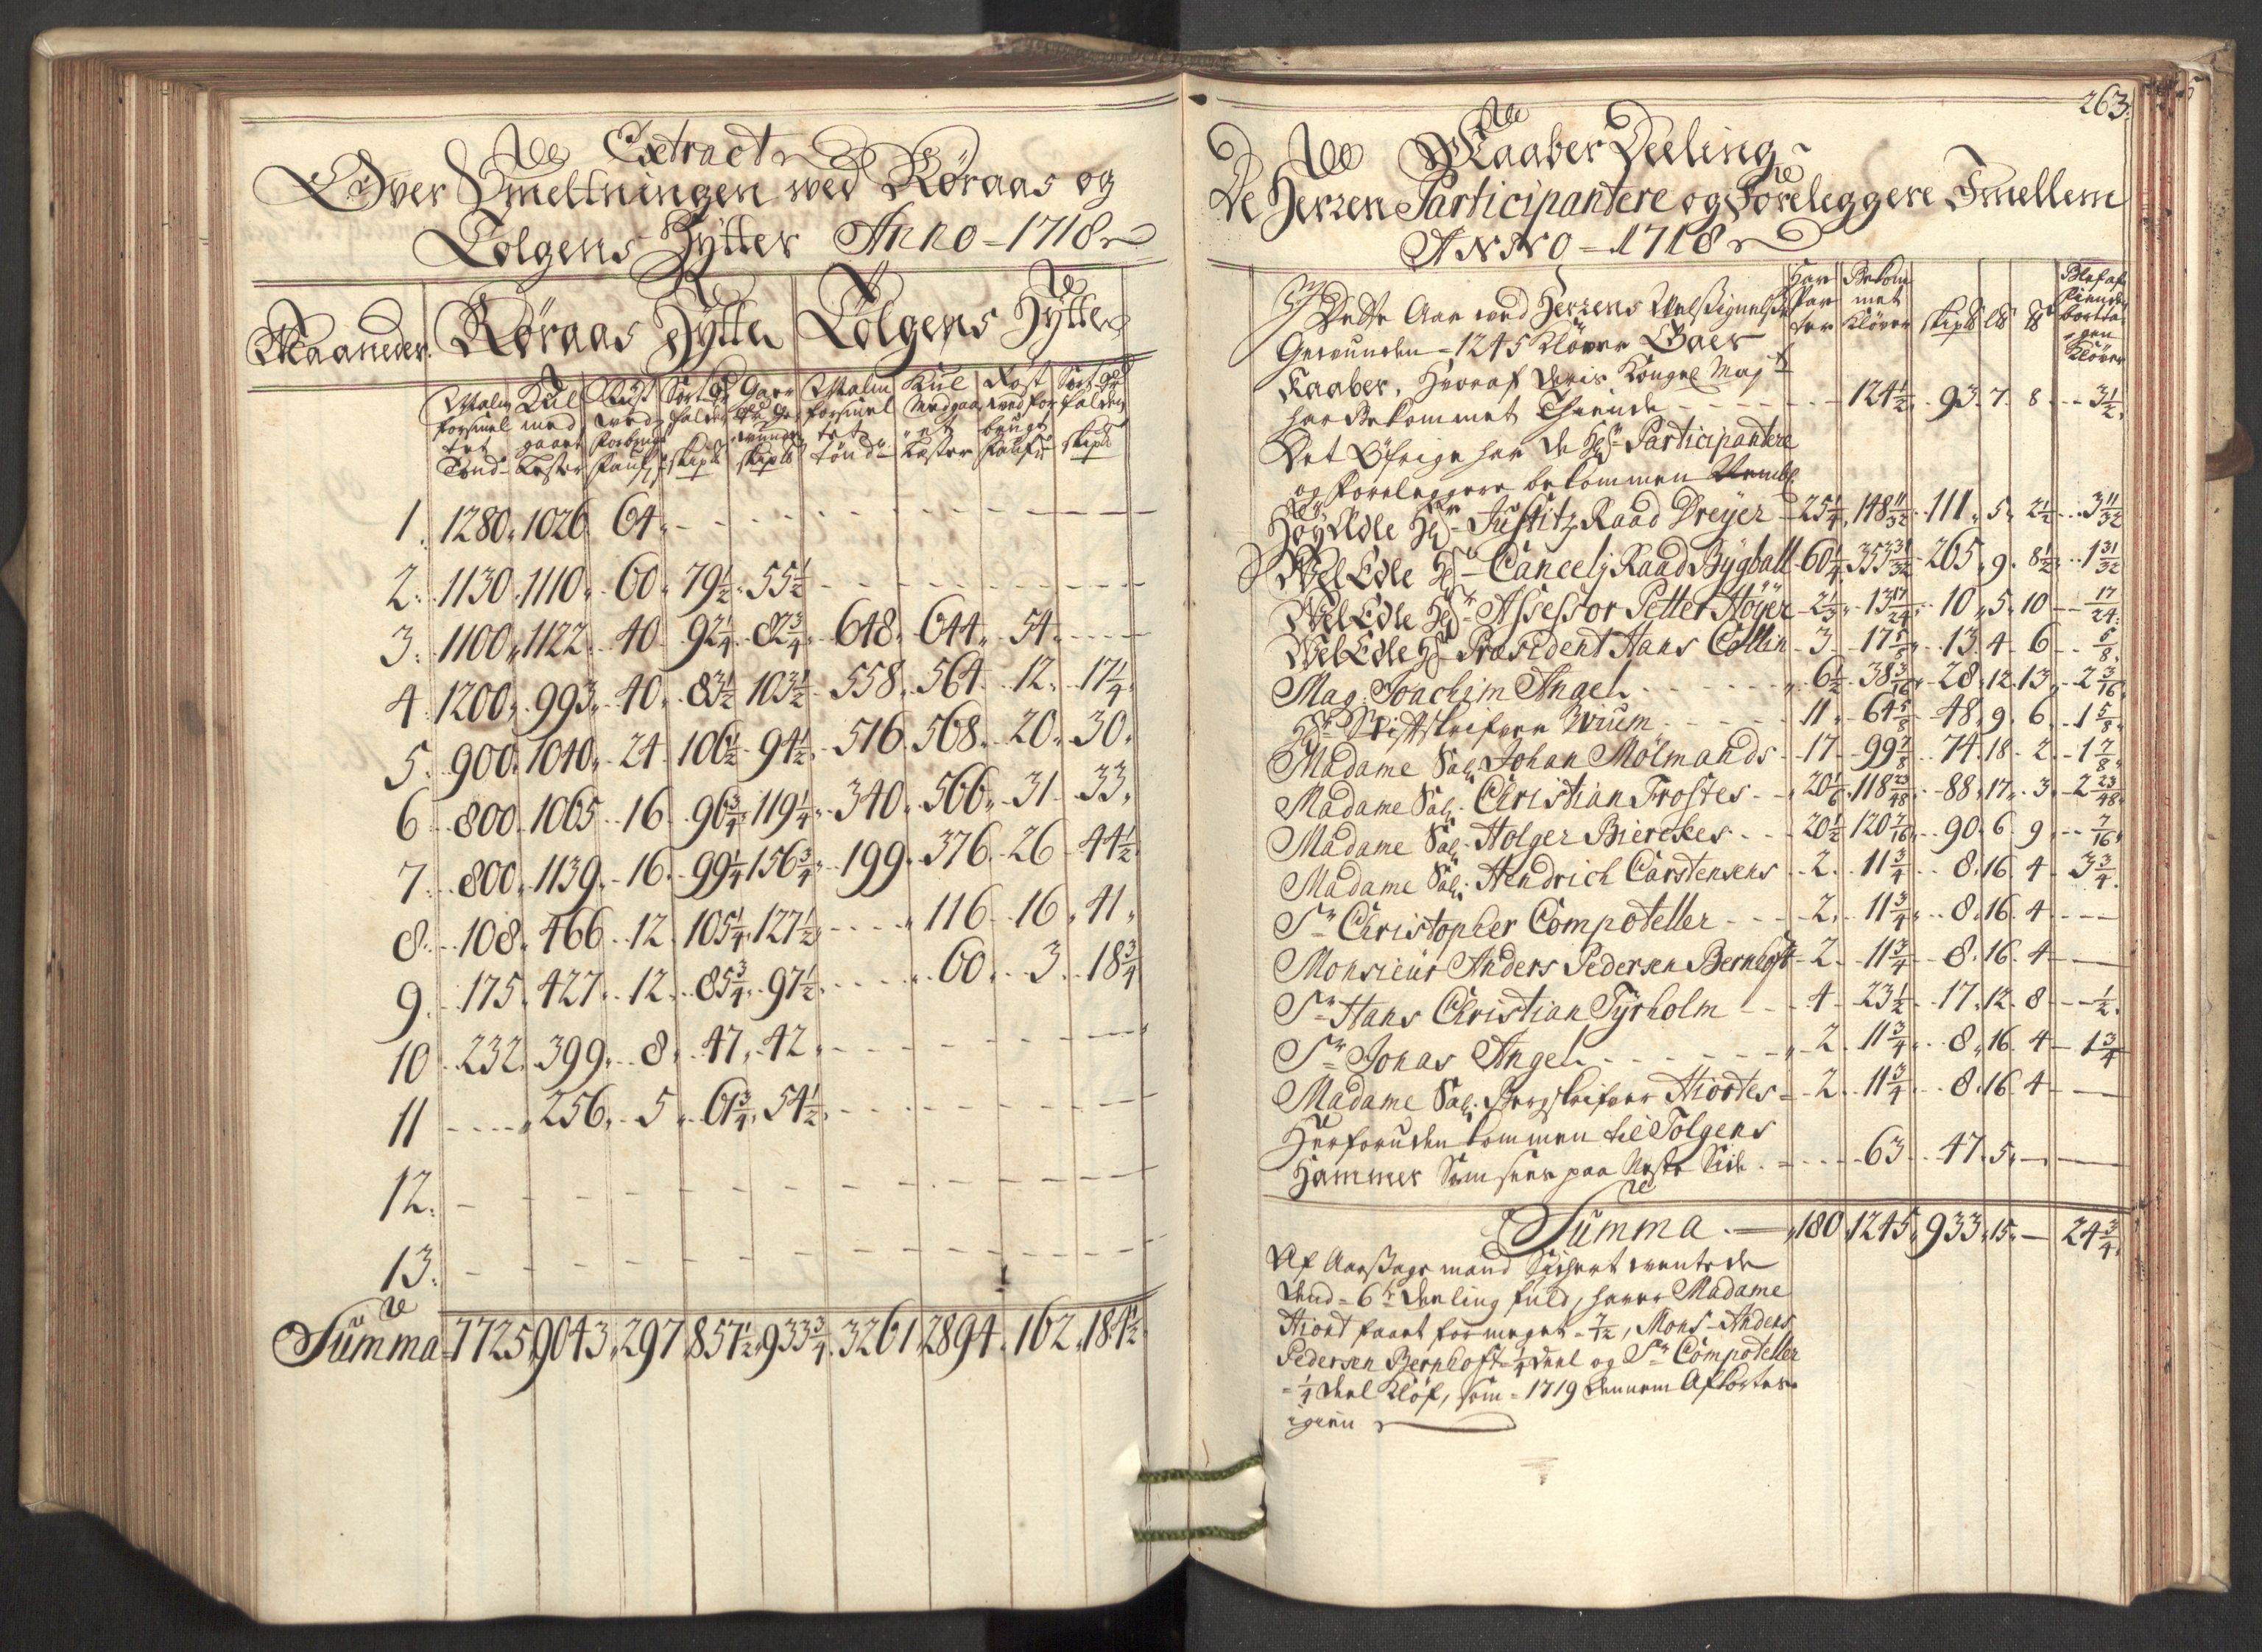 Extract
Over Smeltningen ved Røraas og
Tolgens Hytter Anno - 1718
Maaneder. Røraas Hytte Tolgens Hytte
Malm Kul Røst Sort Gaar Malm Kul Røst Sort
forsmel med ved falden forsmel Medgaa ved for falden
tet gaaet forbrugt vunden tet et brugt
Tønd Læster faufn skip℔ skip℔ tønd Læster faufn skip℔
1. 1280. 1026. 64. - - - - - -
2. 1130. 1110. 60. 79½. 55½ - - - -
3. 1100. 1122. 40. 92¼. 82¾. 648. 644. 54. -
4. 1200. 993. 40. 83½. 103½. 558. 564. 12. 17¼.
5. 900. 1040. 24. 106½. 94½. 516. 568. 20. 30.
6. 800. 1065. 16. 96¾. 119¼. 340. 566. 31. 33.
7. 800. 1139. 16. 99¼. 156¾. 199. 376. 26. 44½.
8. 108. 466. 12. 105¼. 127½. - 116. 16. 41.
9. 175. 427. 12. 85¾. 97½. - 60. 3. 18¾
10. 232. 399. 8. 47. 42. - - - -
11. - 256. 5. 61¾. 54½. - - - -
12. - - - - - - - - -
13. - - - - - - - - -
Summa 7725. 9043. 297. 857½. 933¾. 3261. 2894. 162. 184½.
263.
Kaaber Deeling
De Herrer Participantere og Foreleggere Imellem
ANNO - 1718
Har Bekom
Par met
ter Kløver skip℔ l℔ ℔ Kløver
Dette Aar ved Herrens Velsignelse
Gevunden - 1245 Kløver Gaer
Kaaber, Hvoraf Deris Kongel Mayt
har Bekommet Thiende - - - 124½. 93. 7. 8. - 3½.
Det Øfrige har de Hr Participantere
og Foreleggere bekommen
Høy Adle Hr Justitz Raad Dreyer - 25¼. 148 11/32. 111. 5. 2½. 3 11/32
Wel Edle Hr Cancelj Raad Bygball 60¼. 353 31/32. 265. 9. 8½. 1 31/32
Wel Edle Hr Assessor Petter Höyer - 2⅓. 13 17/24. 10. 5. 10 - 17/24.
Wel Edle Hr Præsident Hans Collin - 3 - 17⅝. 13. 4. 6 - ⅝.
Mag. Joachim Angel - - - 6½. 38 3/16. 28. 12. 13. 2 3/16.
Hr Stiftskrifver Wium - - - 11. 64⅝. 48. 9. 6. 1⅝.
Madame Sal. Johan Mölmands - 17. 99⅞. 74. 18. 2. 1⅞.
Madame Sal. Christian Frostes - - 20⅙. 118 23/48. 88. 17. 3. 2 23/48.
Madame Sal. Holger Bierckes - - 20½. 120 7/16. 90. 6. 9. - 7/16.
Madame Sal. Hendrich Carstensens - 2. 11¾. 8. 16. 4. 3¾.
Sr Christopher Compoteller - - 2. 11¾. 8. 16. 4. - -
Monsieur Anders Pedersen Bernhoft - 2. 11¾. 8. 16. 4. -
Sr Hans Christian Tyrholm - - 4. 23½. 17. 12. 8. - ½.
Sr Jonas Angel - - - 2. 11¾. 8. 16. 4. 1¾
Madame Sal. Bergskrifver Hiortes - 2. 11¾. 8. 16. 4. -
Herforuden kommen til Tolgens
Hammer Som sees paa Neste Side - - 63. 47. 5. - -
Summa - 180. 1245. 933. 15. - 24¾.
Af Aarsage mand
Dend - 6te Deeling fuld, haver Madame
Hiort faaet for meget - ½, Mons Anders
Pedersen Bernhoft - ¼ deel og Sr Compoteller
- ¼ Deel Kløf, som - 1719 dennem Afkortes
igien